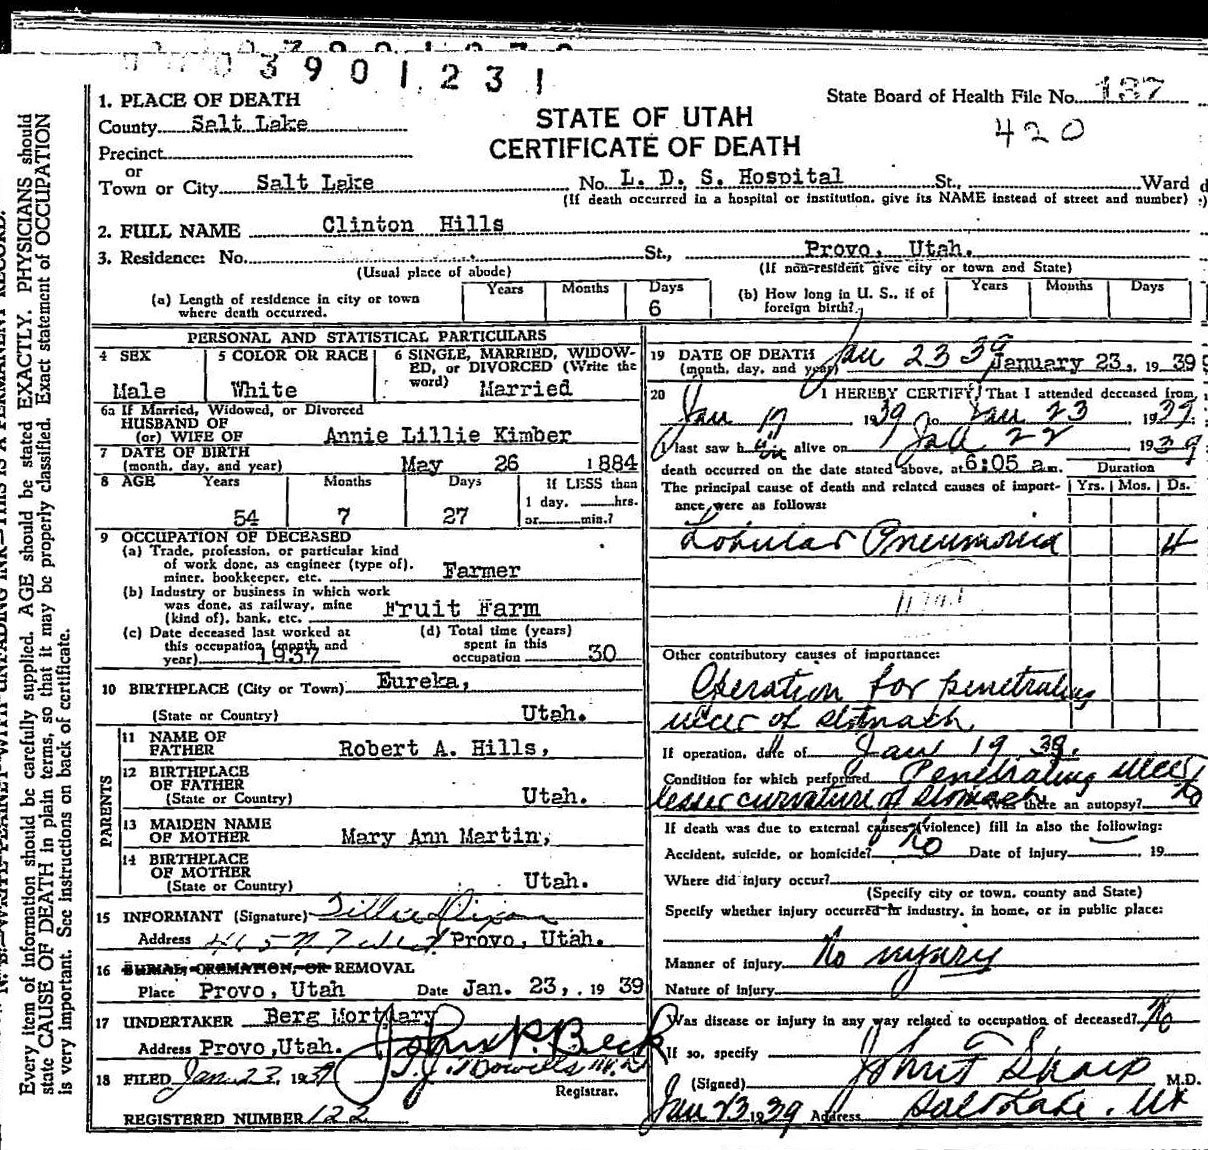 03901231
1. PLACE OF DEATH
State Board of Health File No. 137
County Salt Lake
STATE OF UTAH
420
Precinct
CERTIFICATE OF DEATH
or
Town or City Salt Lake No. L. D. S. Hospital St., Ward
(If death occurred in a hospital or institution, give its NAME instead of street and number)
2. FULL NAME Clinton Hills
3. Residence: No. St., Provo, Utah.
(Usual place of abode) (If non-resident give city or town and State)
(a) Length of residence in city or town where death occurred. Years Months Days 6
(b) How long in U. S., if of foreign birth? Years Months Days
PERSONAL AND STATISTICAL PARTICULARS
4 SEX Male
5 COLOR OR RACE White
6 SINGLE, MARRIED, WIDOW-
ED, or DIVORCED (Write the
word) Married
6a If Married, Widowed, or Divorced
HUSBAND OF
(or) WIFE OF Annie Lillie Kimber
7 DATE OF BIRTH
(month, day, and year) May 26 1884
8 AGE Years Months Days If LESS than
1 day, hrs.
54 7 27 or min.?
9 OCCUPATION OF DECEASED
(a) Trade, profession, or particular kind
of work done, as engineer (type of),
miner, bookkeeper, etc. Farmer
(b) Industry or business in which work
was done, as railway, mine
(kind of), bank, etc. Fruit Farm
(c) Date deceased last worked at
this occupation (month and
year) 1937
(d) Total time (years)
spent in this
occupation 30
10 BIRTHPLACE (City or Town) Eureka,
(State or Country) Utah.
PARENTS
11 NAME OF
FATHER Robert A. Hills,
12 BIRTHPLACE
OF FATHER
(State or Country) Utah.
13 MAIDEN NAME
OF MOTHER Mary Ann Martin,
14 BIRTHPLACE
OF MOTHER
(State or Country) Utah.
15 INFORMANT (Signature)
Address Provo, Utah.
16 BURIAL, CREMATION, OR REMOVAL
Place Provo, Utah Date Jan. 23, 19 39
17 UNDERTAKER Berg Mortuary
Address Provo, Utah. John P. Beck
18 FILED Jan 23, 1939
Registrar.
REGISTERED NUMBER 122
19 DATE OF DEATH
(month, day, and year) Jan 23 39 January 23, 19 39
20 I HEREBY CERTIFY, That I attended deceased from
Jan 17 1939 to Jan 23 1939
I last saw him alive on Jan 22 1939
death occurred on the date stated above, at 6:05 a.m. Duration
The principal cause of death and related causes of import-
ance were as follows: Yrs. Mos. Ds.
Lobular Pneumonia 4
Other contributory causes of importance:
Operation for penetrating
ulcer of stomach
If operation, date of Jan 19 39.
Condition for which performed Penetrating ulcer
lesser curvature of stomach Was there an autopsy? No
If death was due to external causes (violence) fill in also the following:
Accident, suicide, or homicide? No Date of injury , 19
Where did injury occur?
(Specify city or town, county and State)
Specify whether injury occurred in industry, in home, or in public place:
Manner of injury No injury
Nature of injury
Was disease or injury in any way related to occupation of deceased? No
If so, specify
(Signed) John F Sharp M.D.
Jan 23 1939 Address Salt Lake, Ut
N. B.—WRITE PLAINLY WITH UNFADING INK—THIS IS A PERMANENT RECORD.
Every item of information should be carefully supplied. AGE should be stated EXACTLY. PHYSICIANS should
state CAUSE OF DEATH in plain terms, so that it may be properly classified. Exact statement of OCCUPATION
is very important. See instructions on back of certificate.